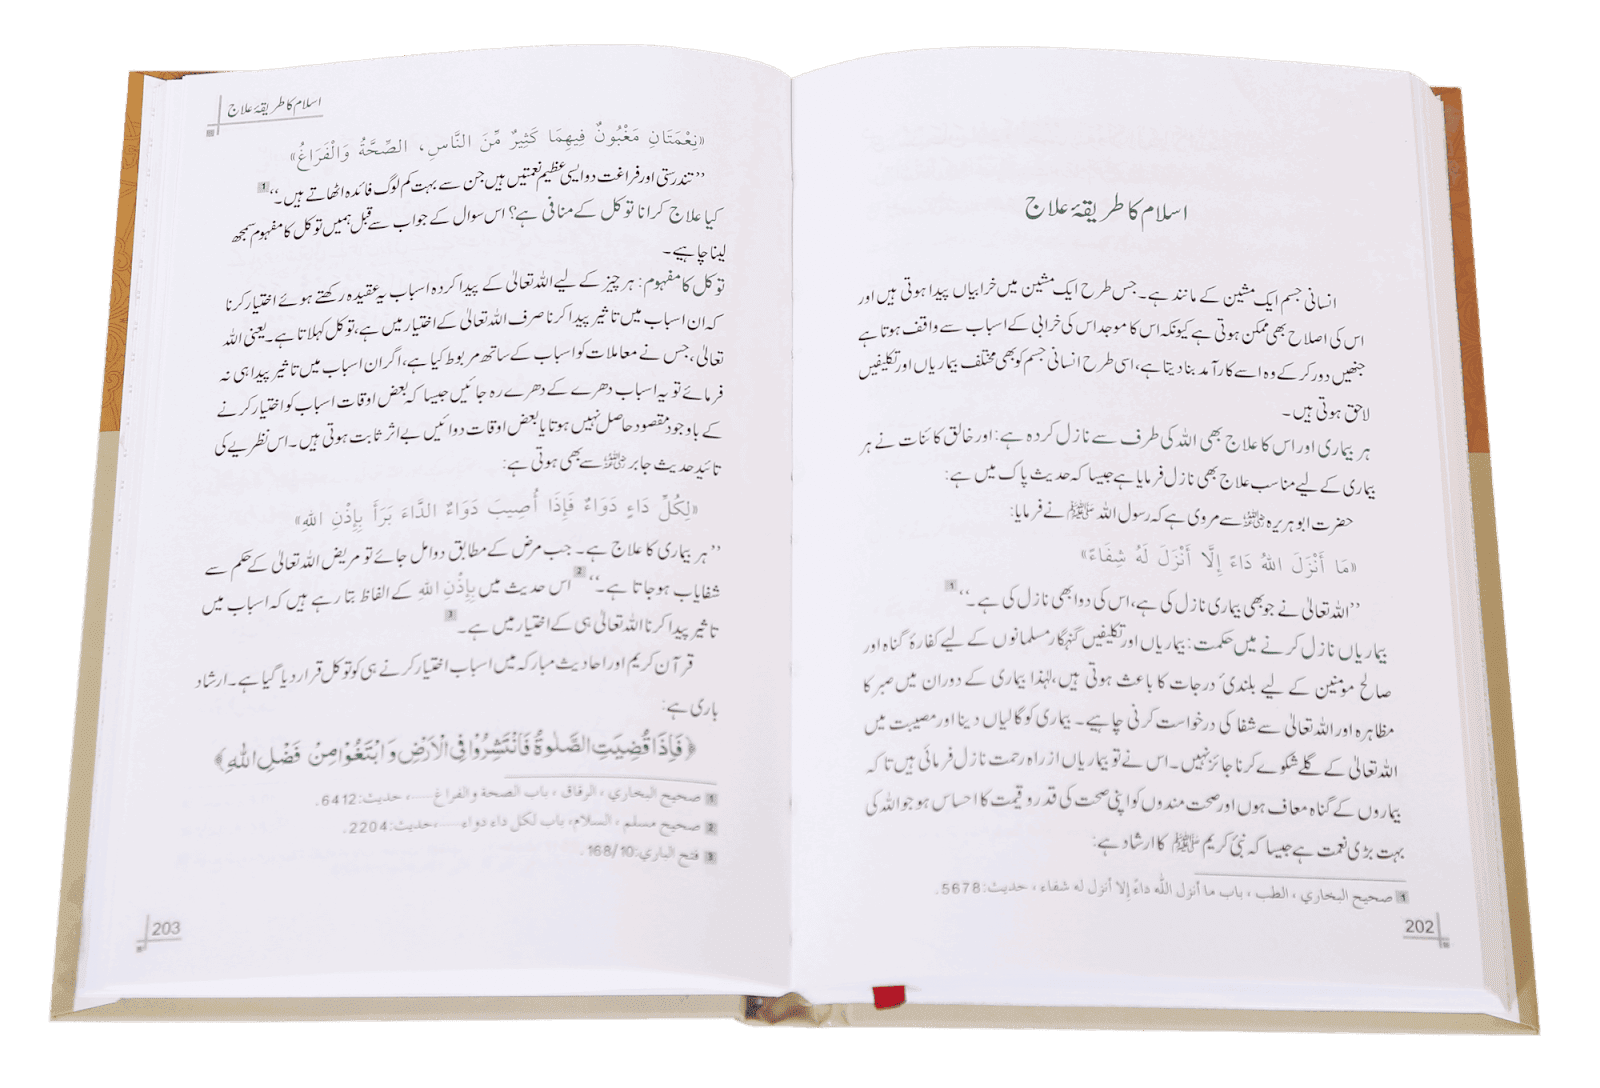 اسلام کا طریقۂ علاج
انسانی جسم ایک مشین کے مانند ہے۔ جس طرح ایک مشین میں خرابیاں پیدا ہوتی ہیں اور
اس کی اصلاح بھی ممکن ہوتی ہے کیونکہ اس کا موجد اس کی خرابی کے اسباب سے واقف ہوتا ہے
جنھیں دور کر کے وہ اسے کارآمد بنا دیتا ہے، اسی طرح انسانی جسم کو بھی مختلف بیماریاں اور تکلیفیں
لاحق ہوتی ہیں۔
ہر بیماری اور اس کا علاج بھی اللہ کی طرف سے نازل کردہ ہے: اور خالق کائنات نے ہر
بیماری کے لیے مناسب علاج بھی نازل فرمایا ہے جیسا کہ حدیث پاک میں ہے:
حضرت ابو ہریرہ رضی اللہ عنہ سے مروی ہے کہ رسول اللہ ﷺ نے فرمایا:
«مَا أَنْزَلَ اللّٰهُ دَاءً إِلَّا أَنْزَلَ لَهُ شِفَاءً»
”اللہ تعالیٰ نے جو بھی بیماری نازل کی ہے، اس کی دوا بھی نازل کی ہے۔“ 1
بیماریاں نازل کرنے میں حکمت: بیماریاں اور تکلیفیں گنہگار مسلمانوں کے لیے کفارۂ گناہ اور
صالح مومنین کے لیے بلندیٔ درجات کا باعث ہوتی ہیں، لہٰذا بیماری کے دوران میں صبر کا
مظاہرہ اور اللہ تعالیٰ سے شفا کی درخواست کرنی چاہیے۔ بیماری کو گالیاں دینا اور مصیبت میں
اللہ تعالیٰ کے گلے شکوے کرنا جائز نہیں۔ اس نے تو بیماریاں از راہ رحمت نازل فرمائی ہیں تاکہ
بیماروں کے گناہ معاف ہوں اور صحت مندوں کو اپنی صحت کی قدر و قیمت کا احساس ہو جو اللہ کی
بہت بڑی نعمت ہے جیسا کہ نبیٔ کریم ﷺ کا ارشاد ہے:
1 صحيح البخاري ، الطب ، باب ما أنزل الله داءً إلا أنزل له شفاء ، حديث:5678.
202
اسلام کا طریقۂ علاج
«نِعْمَتَانِ مَغْبُونٌ فِيهِمَا كَثِيرٌ مِّنَ النَّاسِ، الصِّحَّةُ وَالْفَرَاغُ»
”تندرستی اور فراغت دو ایسی عظیم نعمتیں ہیں جن سے بہت کم لوگ فائدہ اٹھاتے ہیں۔“ 1
کیا علاج کرانا توکل کے منافی ہے؟ اس سوال کے جواب سے قبل ہمیں توکل کا مفہوم سمجھ
لینا چاہیے۔
توکل کا مفہوم: ہر چیز کے لیے اللہ تعالیٰ کے پیدا کردہ اسباب یہ عقیدہ رکھتے ہوئے اختیار کرنا
کہ ان اسباب میں تاثیر پیدا کرنا صرف اللہ تعالیٰ کے اختیار میں ہے، توکل کہلاتا ہے۔ یعنی اللہ
تعالیٰ، جس نے معاملات کو اسباب کے ساتھ مربوط کیا ہے، اگر ان اسباب میں تاثیر پیدا ہی نہ
فرمائے تو یہ اسباب دھرے کے دھرے رہ جائیں جیسا کہ بعض اوقات اسباب کو اختیار کرنے
کے باوجود مقصود حاصل نہیں ہوتا یا بعض اوقات دوائیں بے اثر ثابت ہوتی ہیں۔ اس نظریے کی
تائید حدیث جابر رضی اللہ عنہ سے بھی ہوتی ہے:
«لِكُلِّ دَاءٍ دَوَاءٌ فَإِذَا أُصِيبَ دَوَاءُ الدَّاءَ بَرَأَ بِإِذْنِ اللّٰهِ»
”ہر بیماری کا علاج ہے۔ جب مرض کے مطابق دوا مل جائے تو مریض اللہ تعالیٰ کے حکم سے
شفایاب ہو جاتا ہے۔“ 2 اس حدیث میں بِإِذْنِ اللّٰهِ کے الفاظ بتا رہے ہیں کہ اسباب میں
تاثیر پیدا کرنا اللہ تعالیٰ ہی کے اختیار میں ہے۔ 3
قرآن کریم اور احادیث مبارکہ میں اسباب اختیار کرنے ہی کو توکل قرار دیا گیا ہے۔ ارشاد
باری ہے:
﴿فَاِذَا قُضِيَتِ الصَّلٰوةُ فَانْتَشِرُوْا فِي الْاَرْضِ وَابْتَغُوْا مِنْ فَضْلِ اللّٰهِ﴾
1 صحيح البخاري ، الرقاق ، باب الصحة والفراغ....، حديث:6412.
2 صحيح مسلم ، السلام، باب لكل داء دواء....،حديث:2204.
3 فتح الباري:168/10.
203